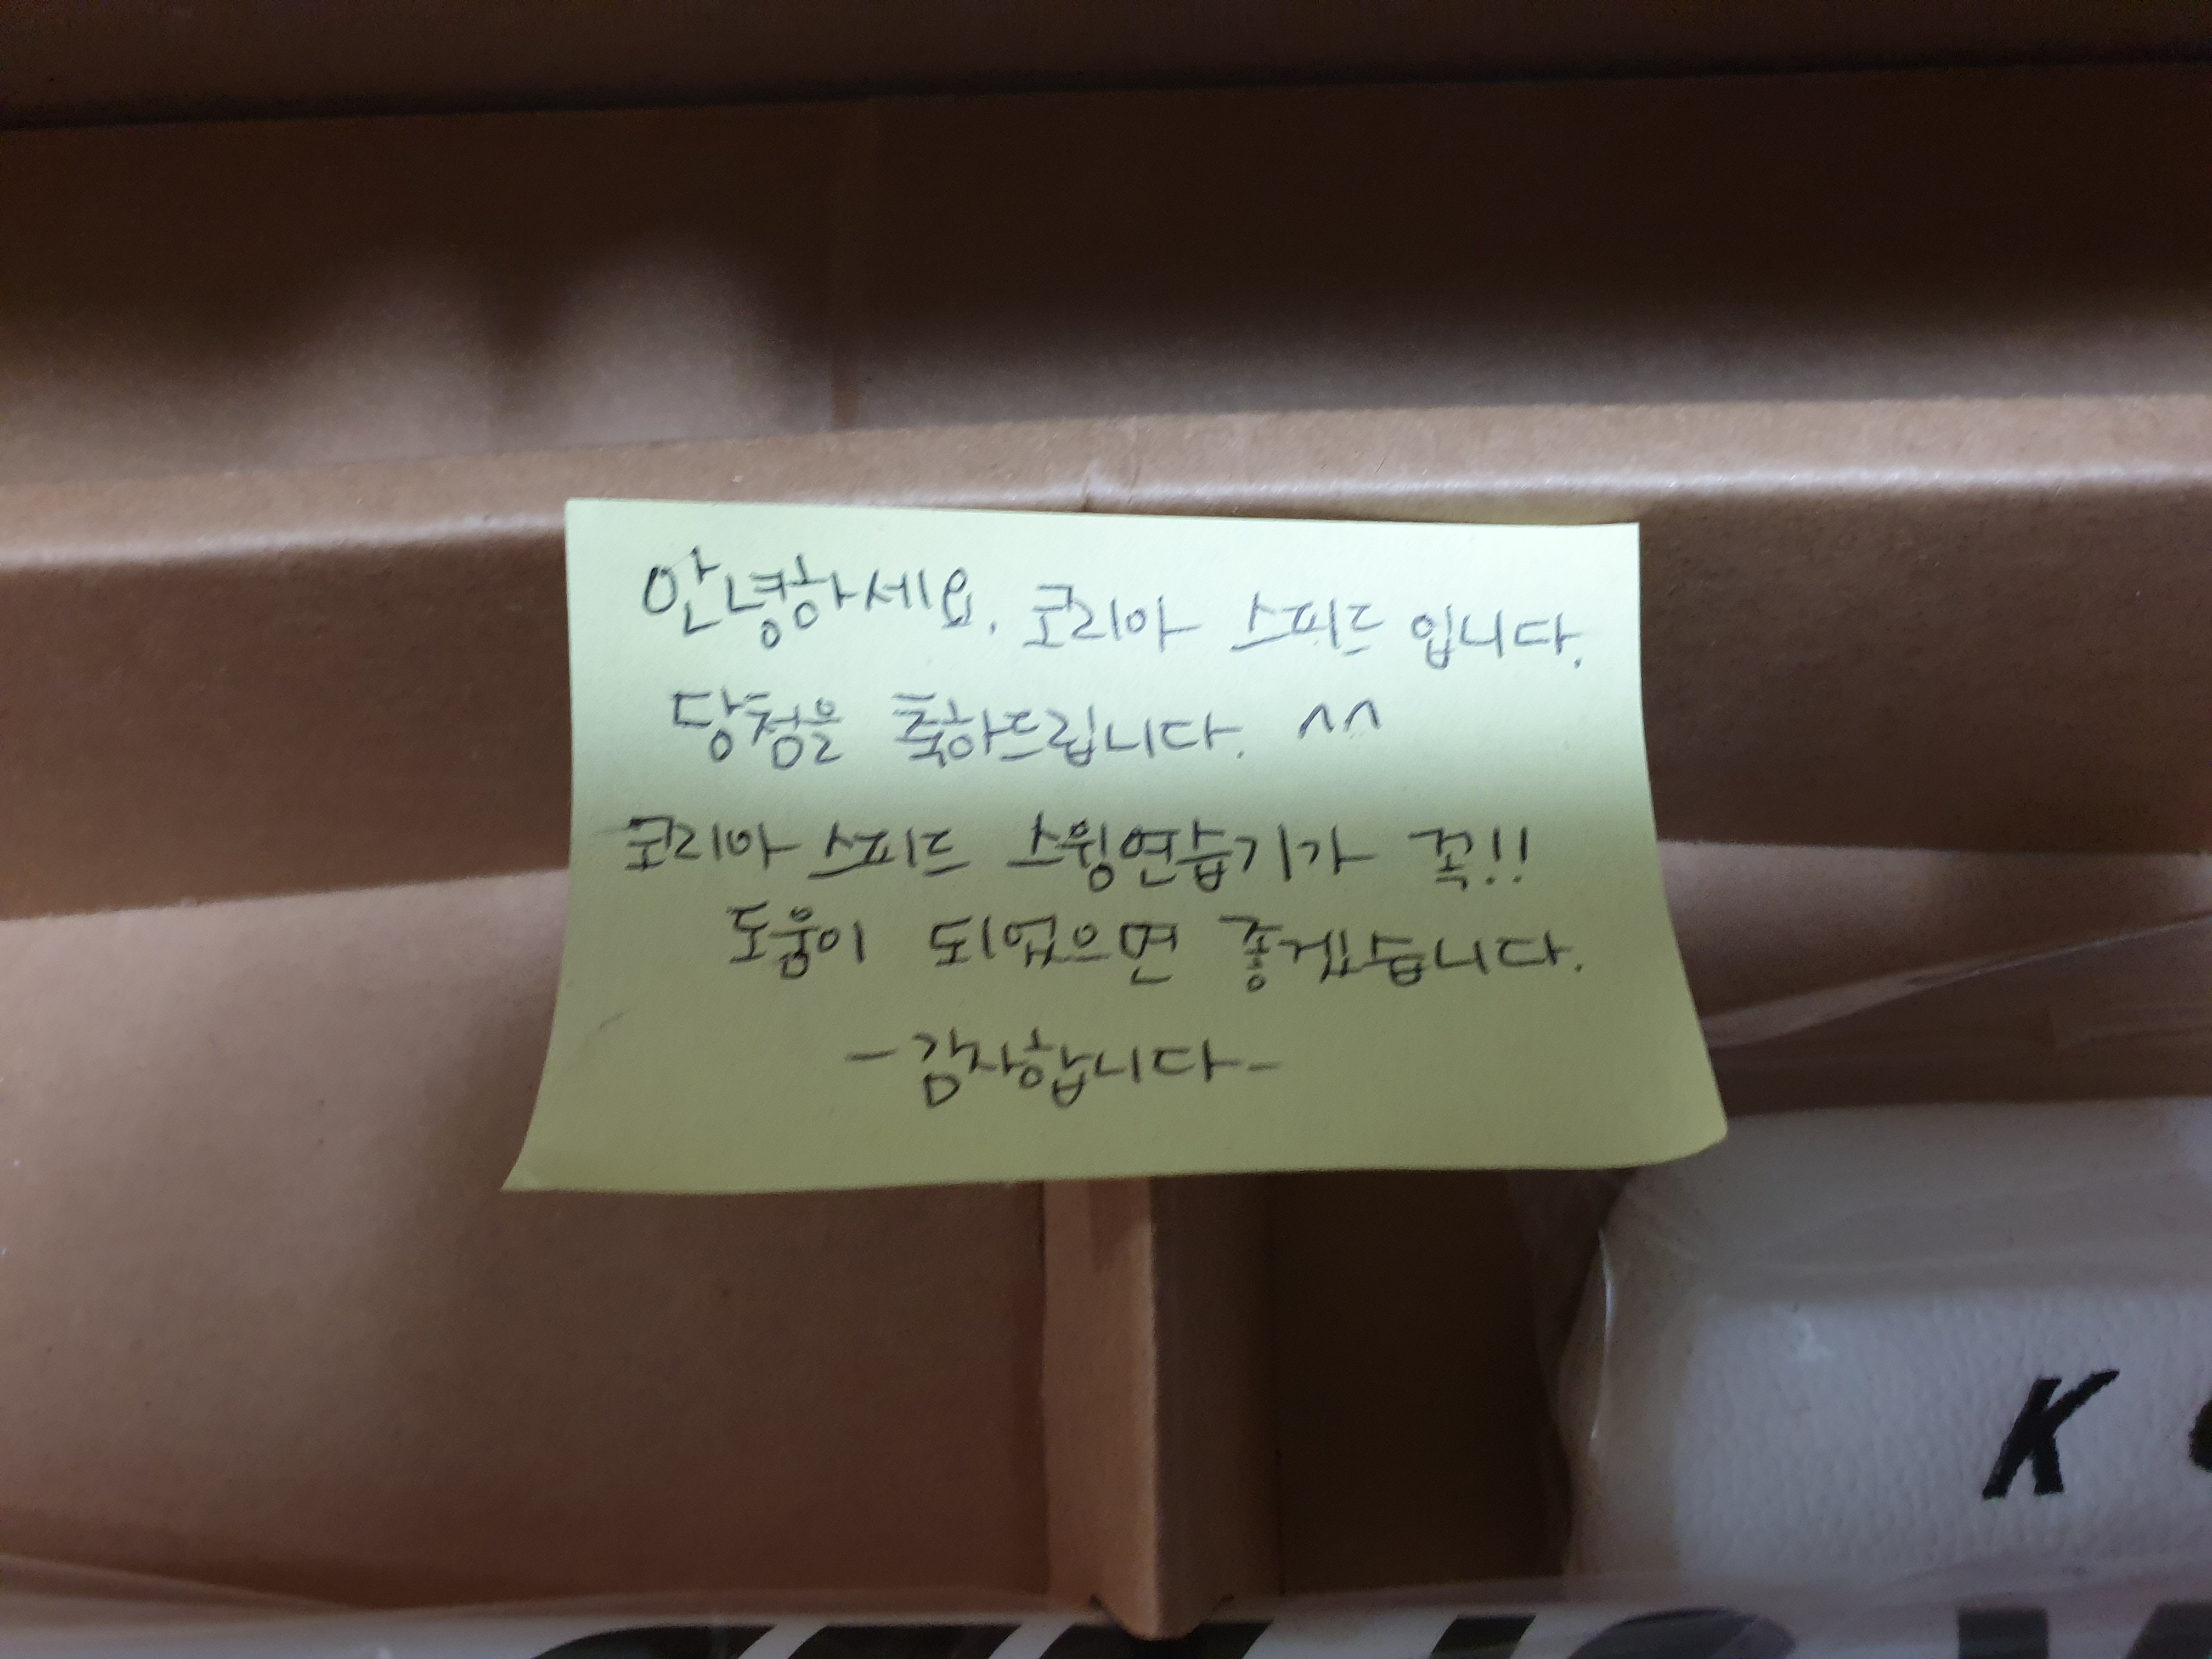 안녕하세요. 코리아 스피드 입니다.
당첨을 축하드립니다. ^^
코리아 스피드 스윙연습기가 꼭!!
도움이 되었으면 좋겠습니다.
-감사합니다-
K